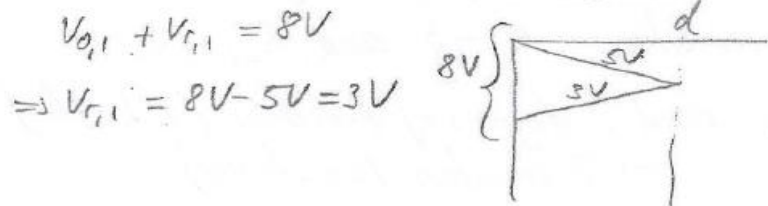 V₀,₁ + Vᵣ,₁ = 8V
⇒ Vᵣ,₁ = 8V - 5V = 3V
d
8V
5V
3V